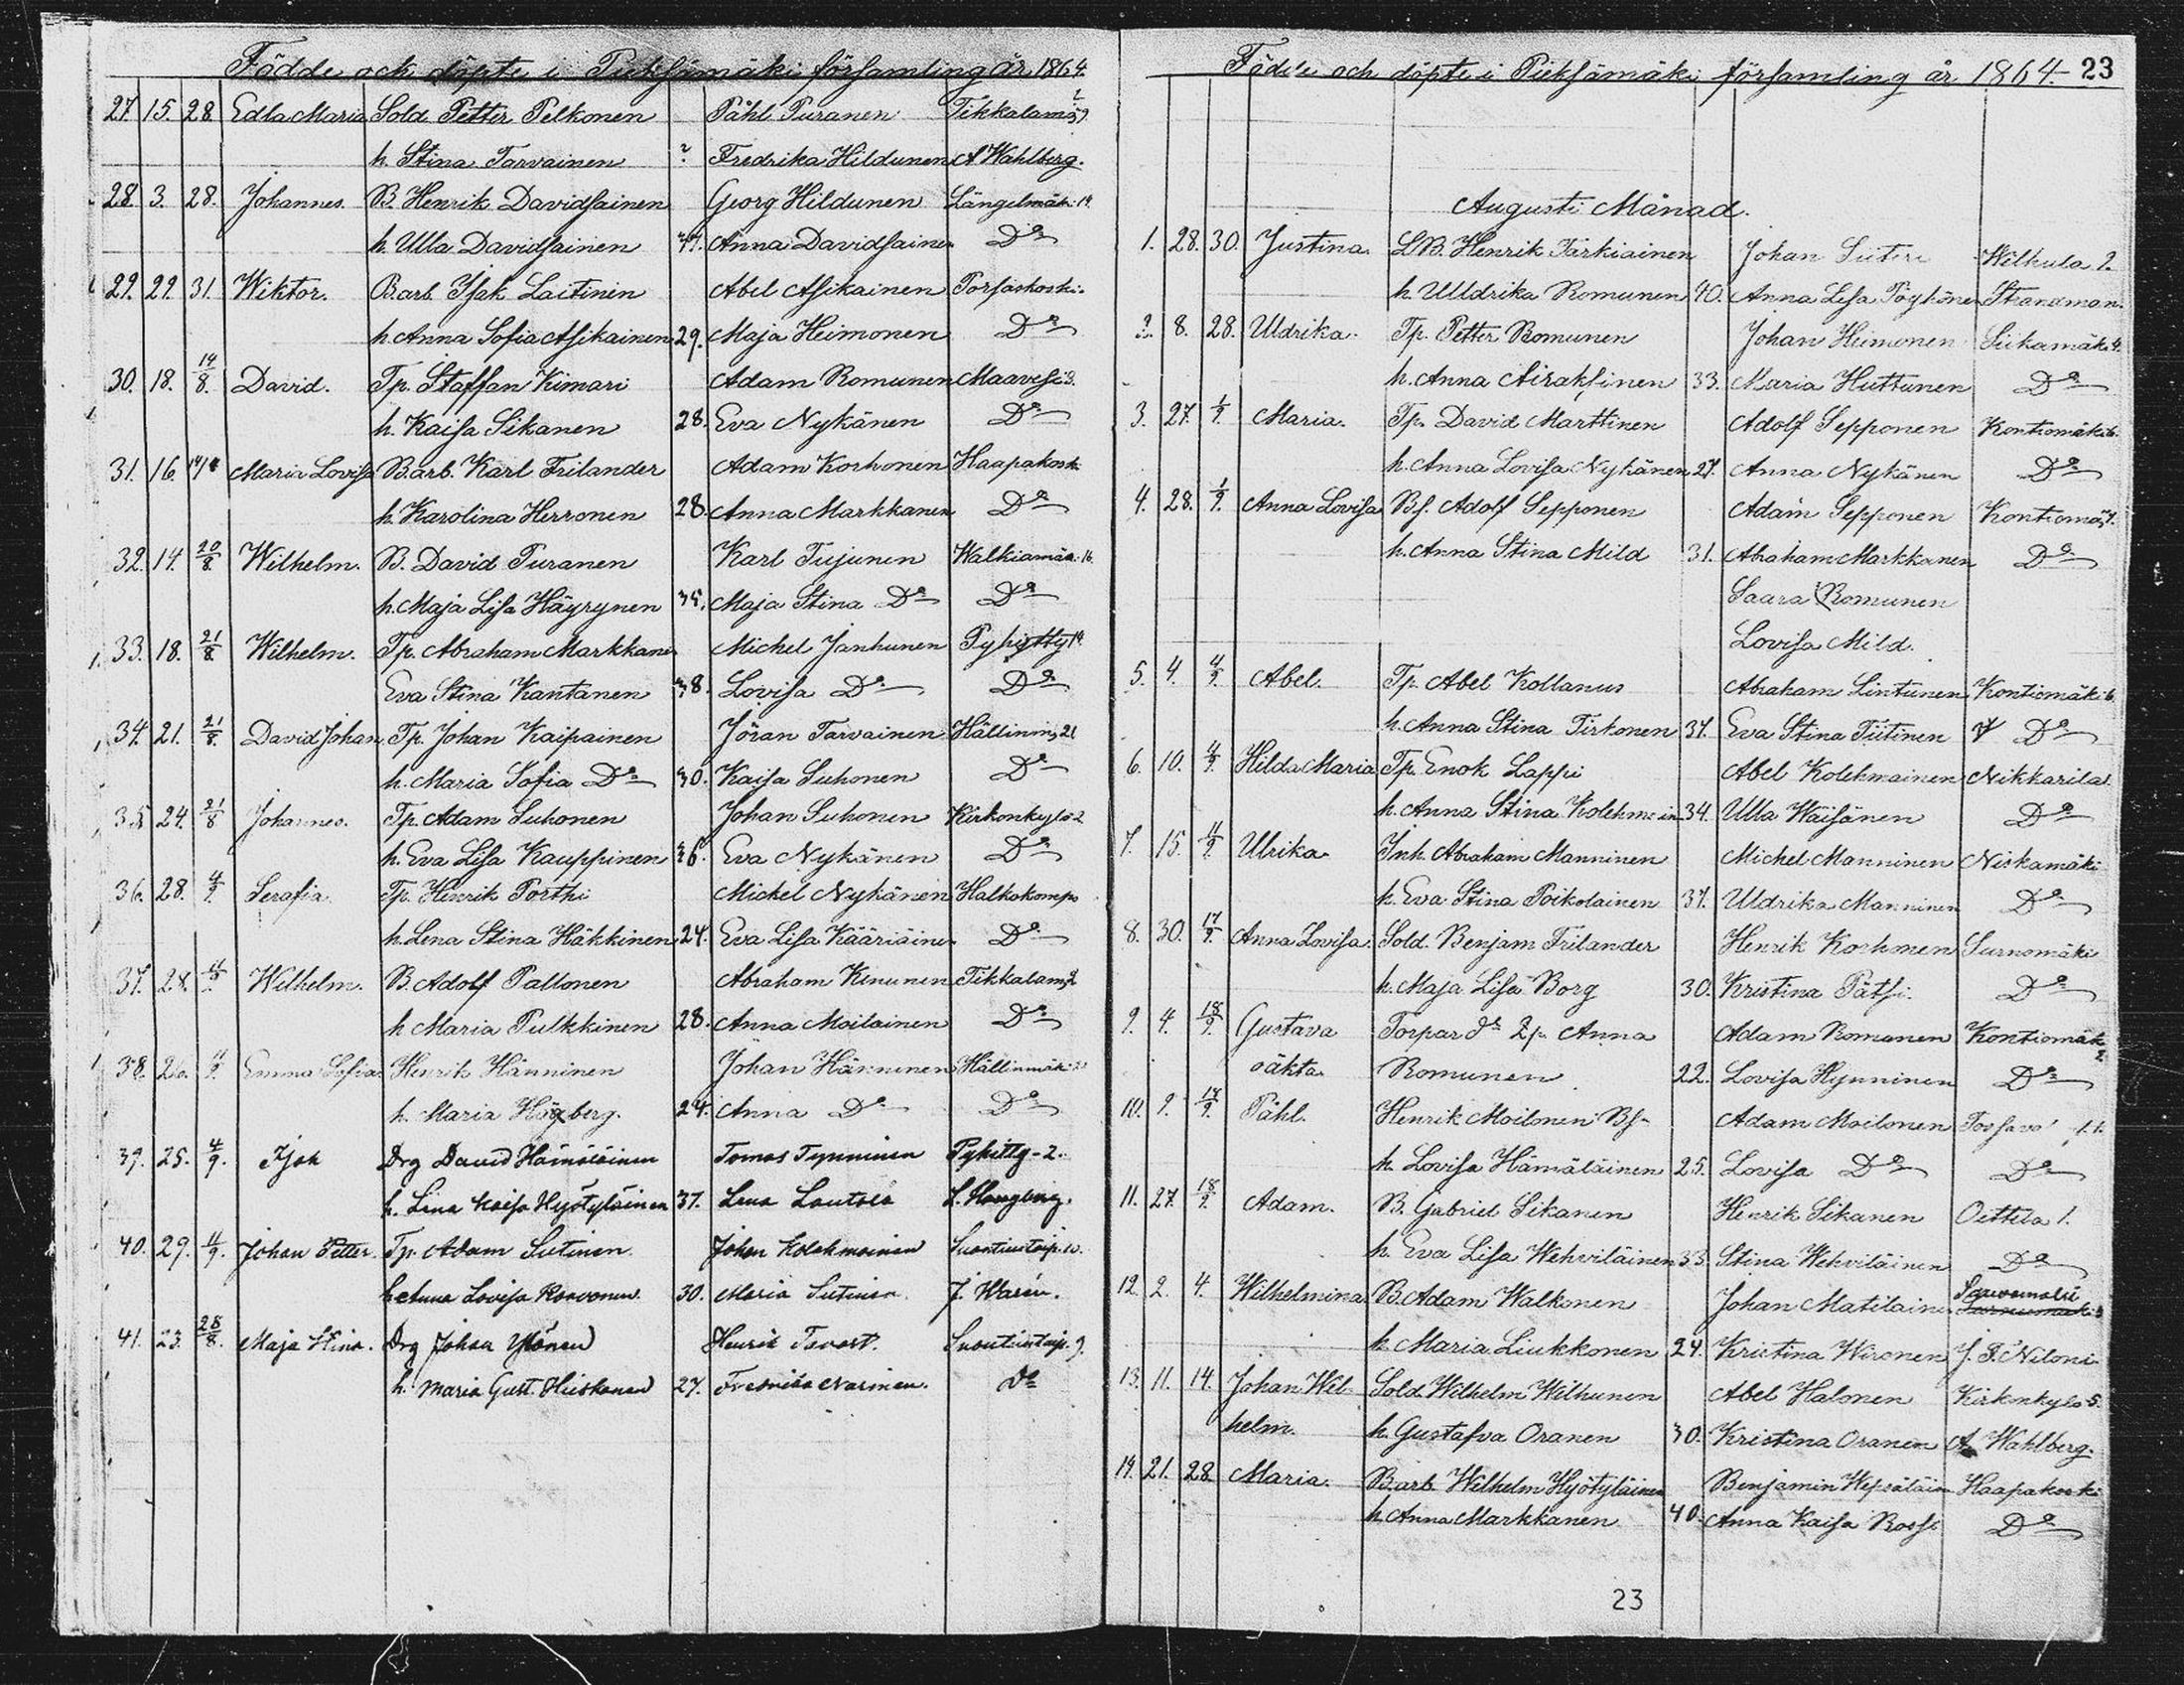 Födde och döpte i Pieksämäki församling år 1864.
27. 15. 28 Edla Maria Sold. Petter Pelkonen Påhl Puranen Tikkalam
h. Stina Tarvainen ? Fredrika Hildunen A Wahlberg.
28. 3. 28. Johannes. B. Henrik Davidsainen Georg Hildunen Längelmäki 14.
h. Ulla Davidsainen 47. Anna Davidsainen Do
29. 29. 31. Wiktor. Barb. Isak Laitinen Abel Asikainen Porsaskoski.
h. Anna Sofia Asikainen 29. Maja Heimonen Do
30. 18. 14/8. David. Tp. Staffan Kimari Adam Romunen Maavesi 3.
h. Kaisa Sikanen 28. Eva Nykänen Do
31. 16. 14/8 Maria Lovisa Barb. Karl Frilander Adam Korhonen Haapakoski
h. Karolina Herronen 28. Anna Markkanen Do
32. 14. 20/8 Wilhelm. B. David Puranen Karl Tujunen Walkiamäa. 16.
h. Maja Lisa Häyrynen 35. Maja Stina Do Do
33. 18. 21/8 Wilhelm. Tp. Abraham Markkane Michel Janhunen Pyhytty 14.
Eva Stina Kantanen 38. Lovisa Do Do
34. 21. 21/8. David Johan. Tp. Johan Kaipainen Jöran Tarvainen Hällinm, 21
h. Maria Sofia Do 30. Kaisa Suhonen Do
35 24. 21/8 Johannes. Tp. Adam Suhonen Johan Suhonen Kirkonkylö 2
h. Eva Lisa Kauppinen 26. Eva Nykänen Do
36. 28. 4/9 Serafia. Tp. Henrik Porthi Michel Nykänen Halkokomp
h. Lena Stina Häkkinen 24. Eva Lisa Kääriäine Do
37. 28. 4/9. Wilhelm. B. Adolf Pallonen Abraham Kinunen Tikkalam 2
h Maria Pulkkinen 28. Anna Moilainen Do
38. 26. 4/9. Emma Sofia Henrik Hänninen Johan Hänninen Hällinmäki 21
h. Maria Högberg. 24. Anna Do Do
39. 25. 4/9. Isak Drg David Hämäläinen Tomas Tynninen Pyhitty-2.
h. Lina Kaisa Hyötyläinen 37. Lena Lautala
40. 29. 11/9. Johan Petter. Tp. Adam Sutinen Johan Kolehmainen Suontientaip. 10.
h. Anna Lovisa Korvonen 30. Maria Sutinen J. Warén.
41. 23. 28/8. Maja Stina. Drg Johan Ylönen Henrik Tavast. Suontientaip. 9.
h. Maria Gust. Hiiskanen 27. Fredrika Narinen. Do
Födde och döpte i Pieksämäki församling år 1864. 23
Augusti Månad.
1. 28. 30. Justina. LB. Henrik Tarkiainen Johan Wilhula 2.
h. Ulldrika Romunen 40. Anna Lisa Pöyhöne Strandman.
2. 8. 28. Uldrika. Tp. Petter Romunen Johan Heimonen Siikamäk 4.
h. Anna Airaksinen 33. Maria Huttunen Do
3. 27. 1/9. Maria. Tp. David Marttinen Adolf Sepponen Kontiomäki 6.
h. Anna Lovisa Nykänen 27. Anna Nykänen Do
4. 28. 1/9. Anna Lovisa Bs. Adolf Sepponen Adam Sepponen Kontiomä 7.
h. Anna Stina Mild 31. Abraham Markkanen Do
Saara Romunen
Lovisa Mild.
5. 4. 4/9. Abel. Tp. Abel Kollanus Abraham Lintunen Kontiomäki 6.
h. Anna Stina Tirkonen 37. Eva Stina Tiitinen Do
6. 10. 4/9. Hilda Maria Tp. Enok Lappi Abel Kolehmainen Nikkarila
h. Anna Stina Kolehmain 34. Ulla Wäisänen Do
7. 15. 11/9. Ulrika Inh. Abraham Manninen Michel Manninen Niskamäki
h. Eva Stina Poikolainen 37. Uldrika Manninen Do
8. 30. 17/9. Anna Lovisa. Sold. Benjam Frilander Henrik Korhonen Surnomäki
h. Maja Lisa Borg 30. Kristina Pätsi. Do
9. 4. 18/9. Gustava Torpar dr Zp. Anna Adam Romanen Kontiomäk 2.
oäkta Romunen. 22. Lovisa Hynninen Do
10. 9. 17/9. Påhl. Henrik Moilonen Bs- Adam Moilonen
h. Lovisa Hämäläinen 25. Lovisa Do Do
11. 27. 18/9. Adam. B. Gabriel Sikanen Henrik Sikanen Oittila 1.
h. Eva Lisa Wehviläinen 33. Stina Wehviläinen Do
12. 2. 4. Wilhelmina B. Adam Walkonen Johan Matilaine
h. Maria Liukkonen 24. Kristina Wironen J. F. Niloni
13. 11. 14. Johan Wil- Sold. Wilhelm Wilhunen Abel Halonen Kirkonkylö 5.
helm. h. Gustafva Oranen 30. Kristina Oranen A Wahlberg.
14. 21. 28. Maria. Barb. Wilhelm Hyötyläinen Benjamin Hepoläin Haapakoski
h. Anna Markkanen 40. Anna Kaisa Rossi Do
23